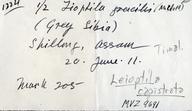 1/2 Lioptila gracilis (McClell)
(Grey Sibia)
Shillong, Assam
Timal.
20. June. 11.
Mack 205
Leioptila
capistrata
MVZ 9691